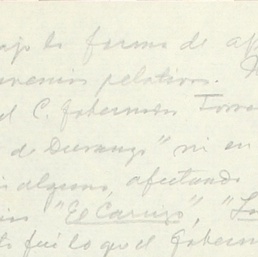 bajo la forma de
venios relativos.
el C. Gobernador Torre
de Durango" ni en
alguno, afectando
"El Carrizo", "La
to fué lo que el Gobern